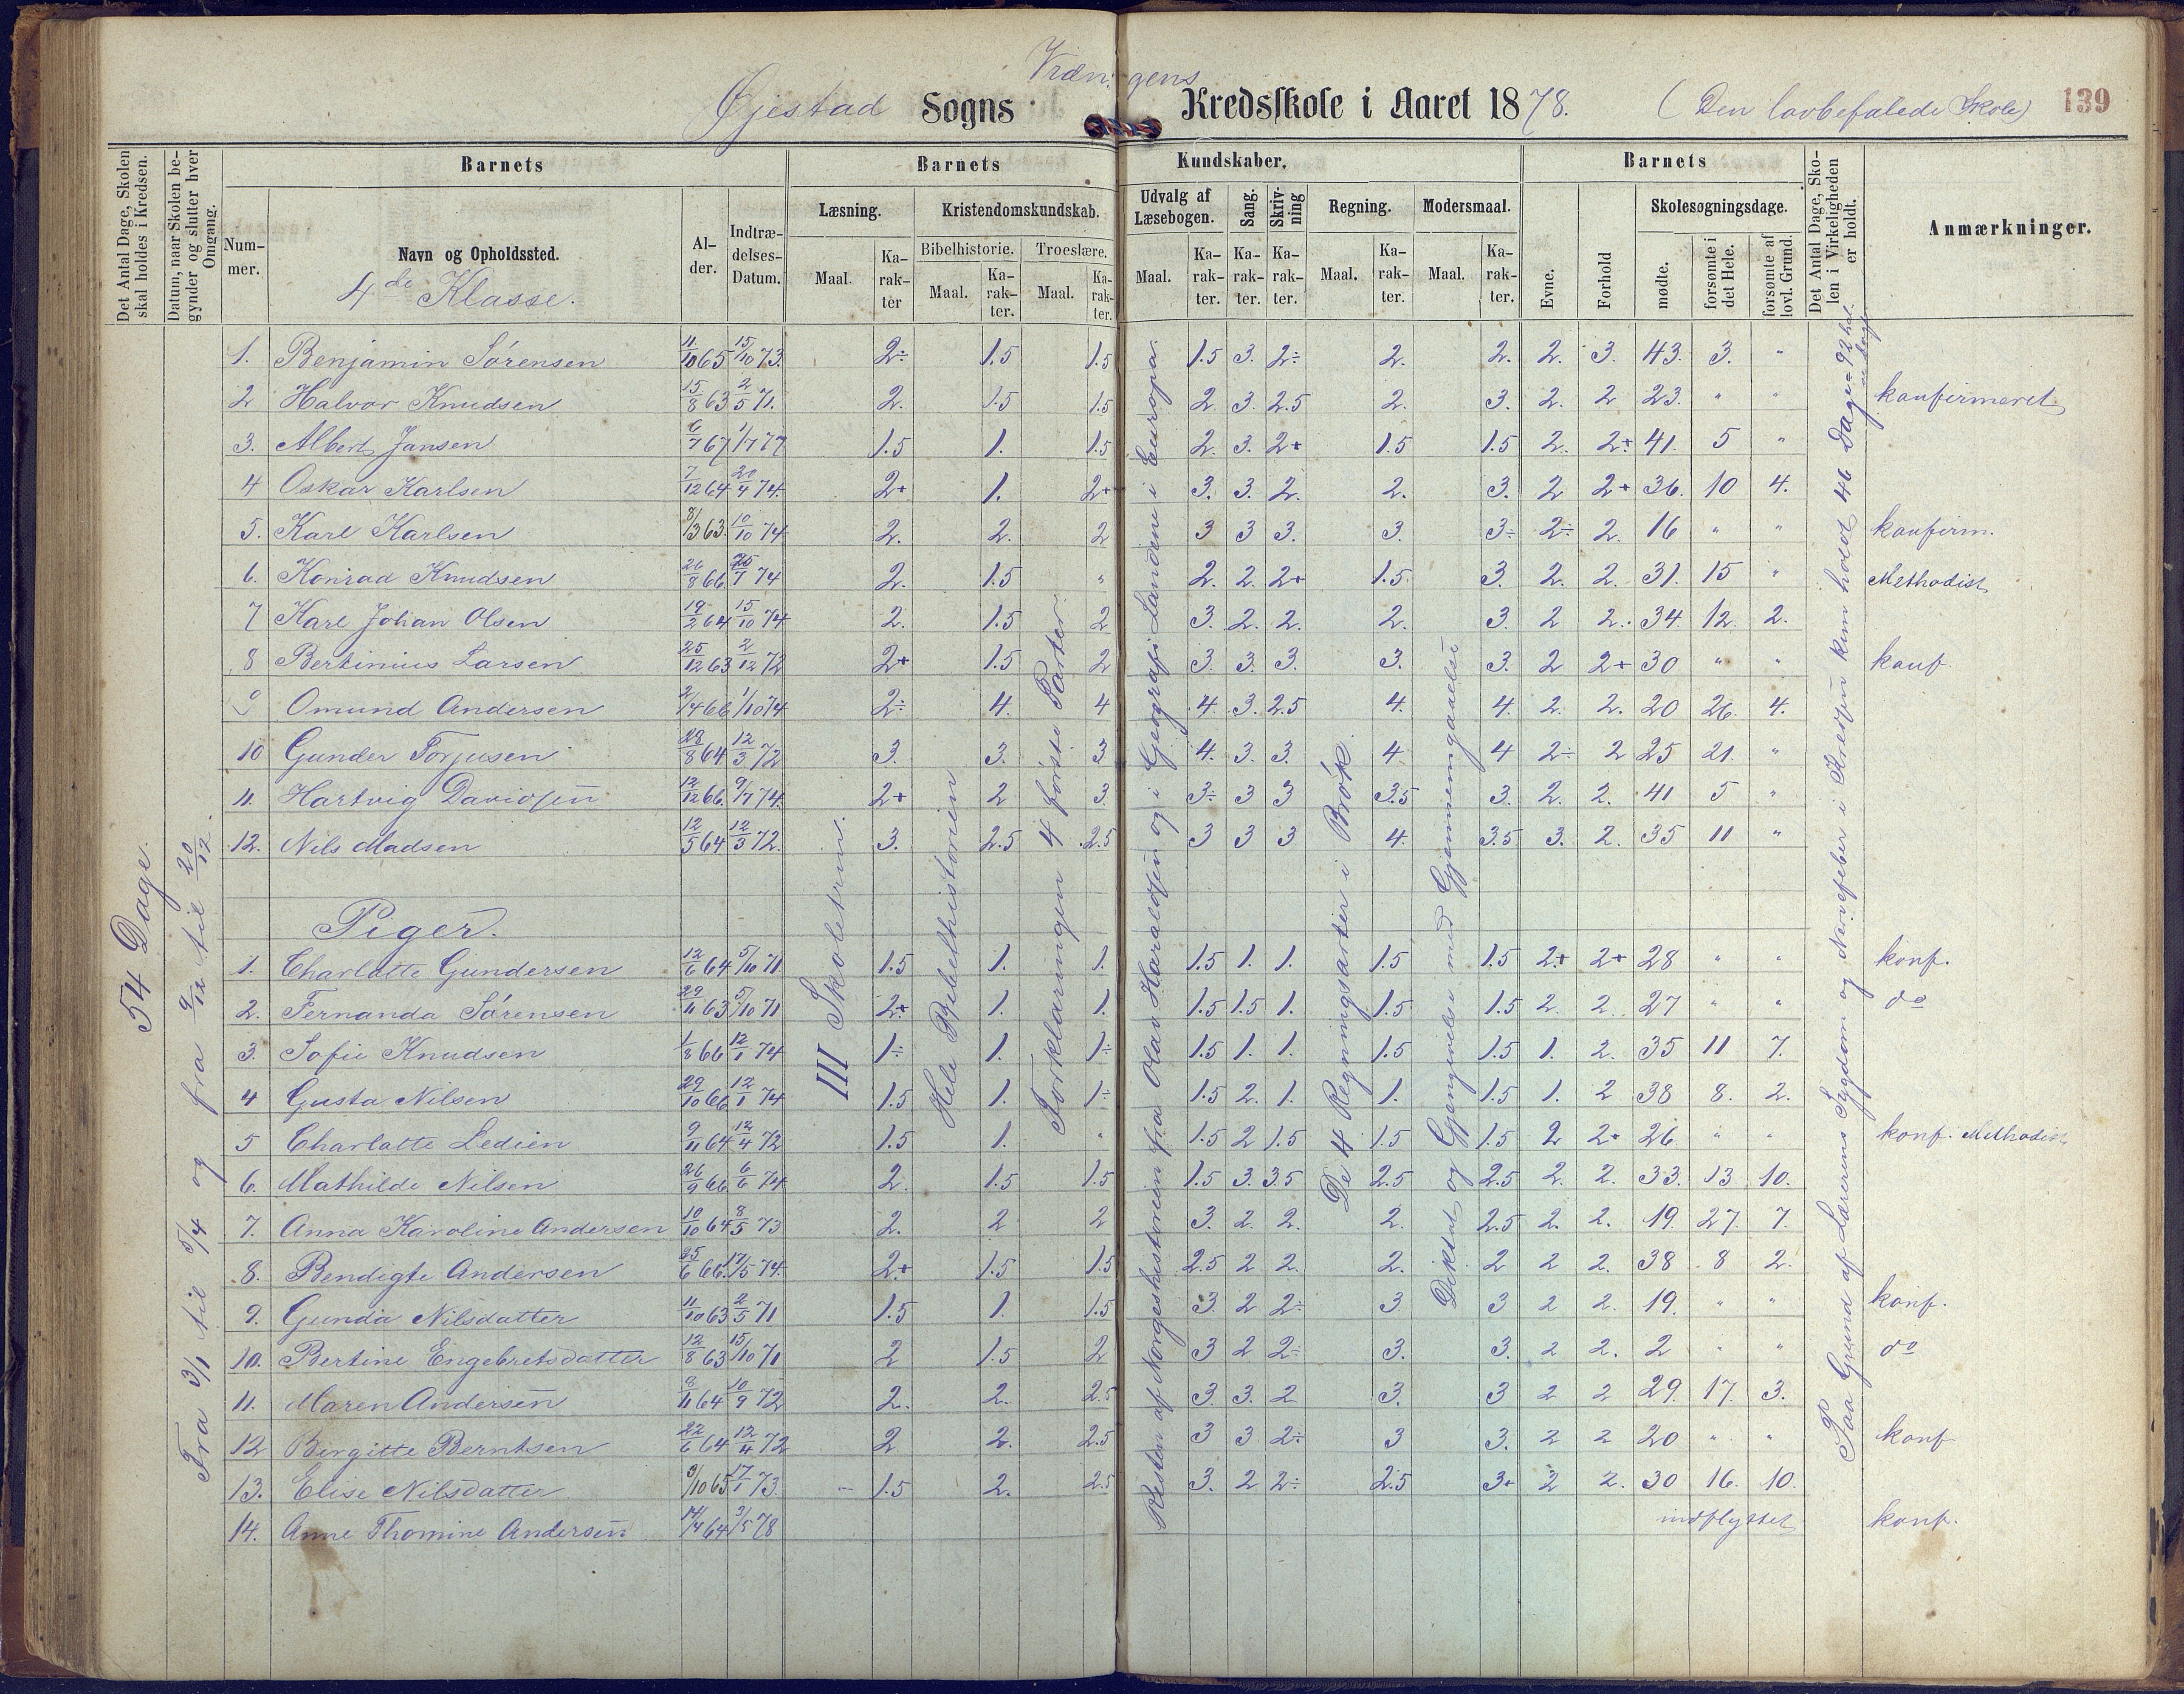 Vrængens
Øjestad Sogns Kredsskole i Aaret 1878. (Den lovbefalede Skole) 139
Det Antal Dage, Skolen skal holdes i Kredsen.
Datum, naar Skolen begynder og slutter hver Omgang.
Barnets
Barnets Kundskaber.
Barnets
Det Antal Dage, Skolen i Virkeligheden er holdt.
Anmærkninger.
Nummer.
Navn og Opholdssted.
Alder.
Indtrædelses-Datum.
Læsning.
Kristendomskundskab.
Bibelhistorie. Troeslære.
Udvalg af Læsebogen.
Sang.
Skrivning
Regning.
Modersmaal.
Evne.
Forhold
Skolesøgningsdage.
mødte.
forsømte i det Hele.
forsømte af lovl. Grund.
Maal. Karakter Maal. Karakter. Maal. Karakter. Maal. Karakter. Karakter. Karakter. Maal. Karakter. Maal. Karakter.
4de Klasse.
54 Dage.
Fra 3/1 til 5/4 og fra 9/12 til 20/12.
III Skoletrin.
Hele Bibelhistorien
Forklaringen 4 første Parter
Resten af Norgeshistorien fra Olav Haraldsen og i Geografi Landene i Europa.
De 4 Regningsarter i Brøk
Diktat og Gjengivelse med Gjennemgaaelse
Paa Grund af Lærerens Sygdom og Nervefeber i Kredsen kun holdt 46 Dage = 92 hal-
ve Dage
1. Benjamin Sørensen 11/10 65 15/10 73. 2÷ 1.5 1.5 1.5 3. 2÷ 2. 2. 2. 3. 43. 3. "
2 Halvor Knudsen 15/8 63 2/5 71. 2. 1.5 1.5 2. 3. 2.5 2. 3. 2. 2 23. " " konfirmeret
3. Albert Jansen 6/7 67 1/7 77 1.5 1. 1.5 2. 3. 2+ 1.5 1.5 2. 2+ 41. 5 "
4 Oskar Karlsen 7/12 64 20/4 74. 2+ 1. 2+ 3. 3. 2. 2. 3. 2 2+ 36. 10 4.
5. Karl Karlsen 8/3 63. 10/10 74 2. 2. 2 3 3 3. 3. 3÷ 2÷ 2. 16 " " konfirm.
6. Konrad Knudsen 26/8 66 25/7 74 2. 1.5 " 2. 2. 2+ 1.5. 3. 2. 2. 31. 15 " Methodist
7 Karl Johan Olsen 19/2 64 15/10 74 2. 1.5 2 3. 2. 2. 2. 3. 2 2. 34. 12. 2.
8 Bertinius Larsen 25/12 63 2/12 72 2+ 1.5 2 3. 3. 3. 3. 3. 2 2+ 30 " " konf.
9 Omund Andersen 2/4 66 1/10 74 2÷ 4. 4 4. 3. 2.5 4. 4. 2. 2. 20 26. 4.
10 Gunder Torjusen 23/8 64 12/3 72 3. 3. 3 4. 3. 3. 4 4 2÷ 2 25 21. "
11. Hartvig Davidsen 12/12 66. 9/7 74. 2+ 2 3. 3÷ 3 3 3.5 3. 2. 2. 41 5 "
12. Nils Madsen 12/5 64 12/3 72. 3. 2.5 2.5 3 3 3 4. 3.5 3. 2. 35 11 "
Piger.
1. Charlotte Gundersen 12/6 64 5/10 71 1.5 1. 1. 1.5 1. 1. 1.5 1.5 2+ 2+ 28 " " konf.
2. Fernanda Sørensen 29/11 63 5/10 71 2+ 1. 1. 1.5 1.5 1. 1.5 1.5 2. 2. 27 " " do
3. Sofie Knudsen 1/8 66 12/1 74 1÷ 1. 1÷ 1.5 1. 1. 1.5 1.5 1. 2. 35 11 7.
4 Gusta Nilsen 29/10 66 12/1 74 1.5 1. 1÷ 1.5 2. 1. 1. 1.5 1. 2 38 8. 2.
5 Charlotte Ledien 9/11 64 12/4 72 1.5 1. " 1.5 2 1.5 1.5 1.5 2 2+ 26 " " konf. Methodist
6. Mathilde Nilsen 26/9 66 6/6 74 2. 1.5 1.5 1.5 3. 3.5 2.5 2.5 2. 2. 33. 13 10.
7. Anna Karoline Andersen 10/10 64 8/5 73 2. 2 2 3. 2. 2. 2. 2.5 2. 2. 19. 27. 7.
8. Bendigte Andersen 25/6 66. 17/5 74. 2+ 1.5 1.5 2.5 2 2. 2. 2 2 2. 38 8 2.
9. Gunda Nilsdatter 11/10 63 2/5 71 1.5 1. 1.5 3. 2 2÷ 3 3 2 2. 19. " " konf.
10. Bertine Engebretsdatter 12/8 63 15/10 71 2 1.5 2 3 2 2÷ 3. 3. 2 2. 2 " " do
11. Maren Andersen 8/11 64 10/9 72 2. 2. 2.5 3 3. 2 3. 3 2 2 29. 17. 3.
12 Birgitte Berntsen 22/6 64 12/4 72 2 2. 2.5 3 3 2÷ 3 3. 2 2 20 " " konf
13. Elise Nilsdatter 9/10 65 17/1 73. 1.5 2. 2.5 3. 2 2÷ 2.5 3+ 2 2. 30 16. 10.
14. Anne Thomine Andersen 14/4 64 3/5 78 indflyttet konf.